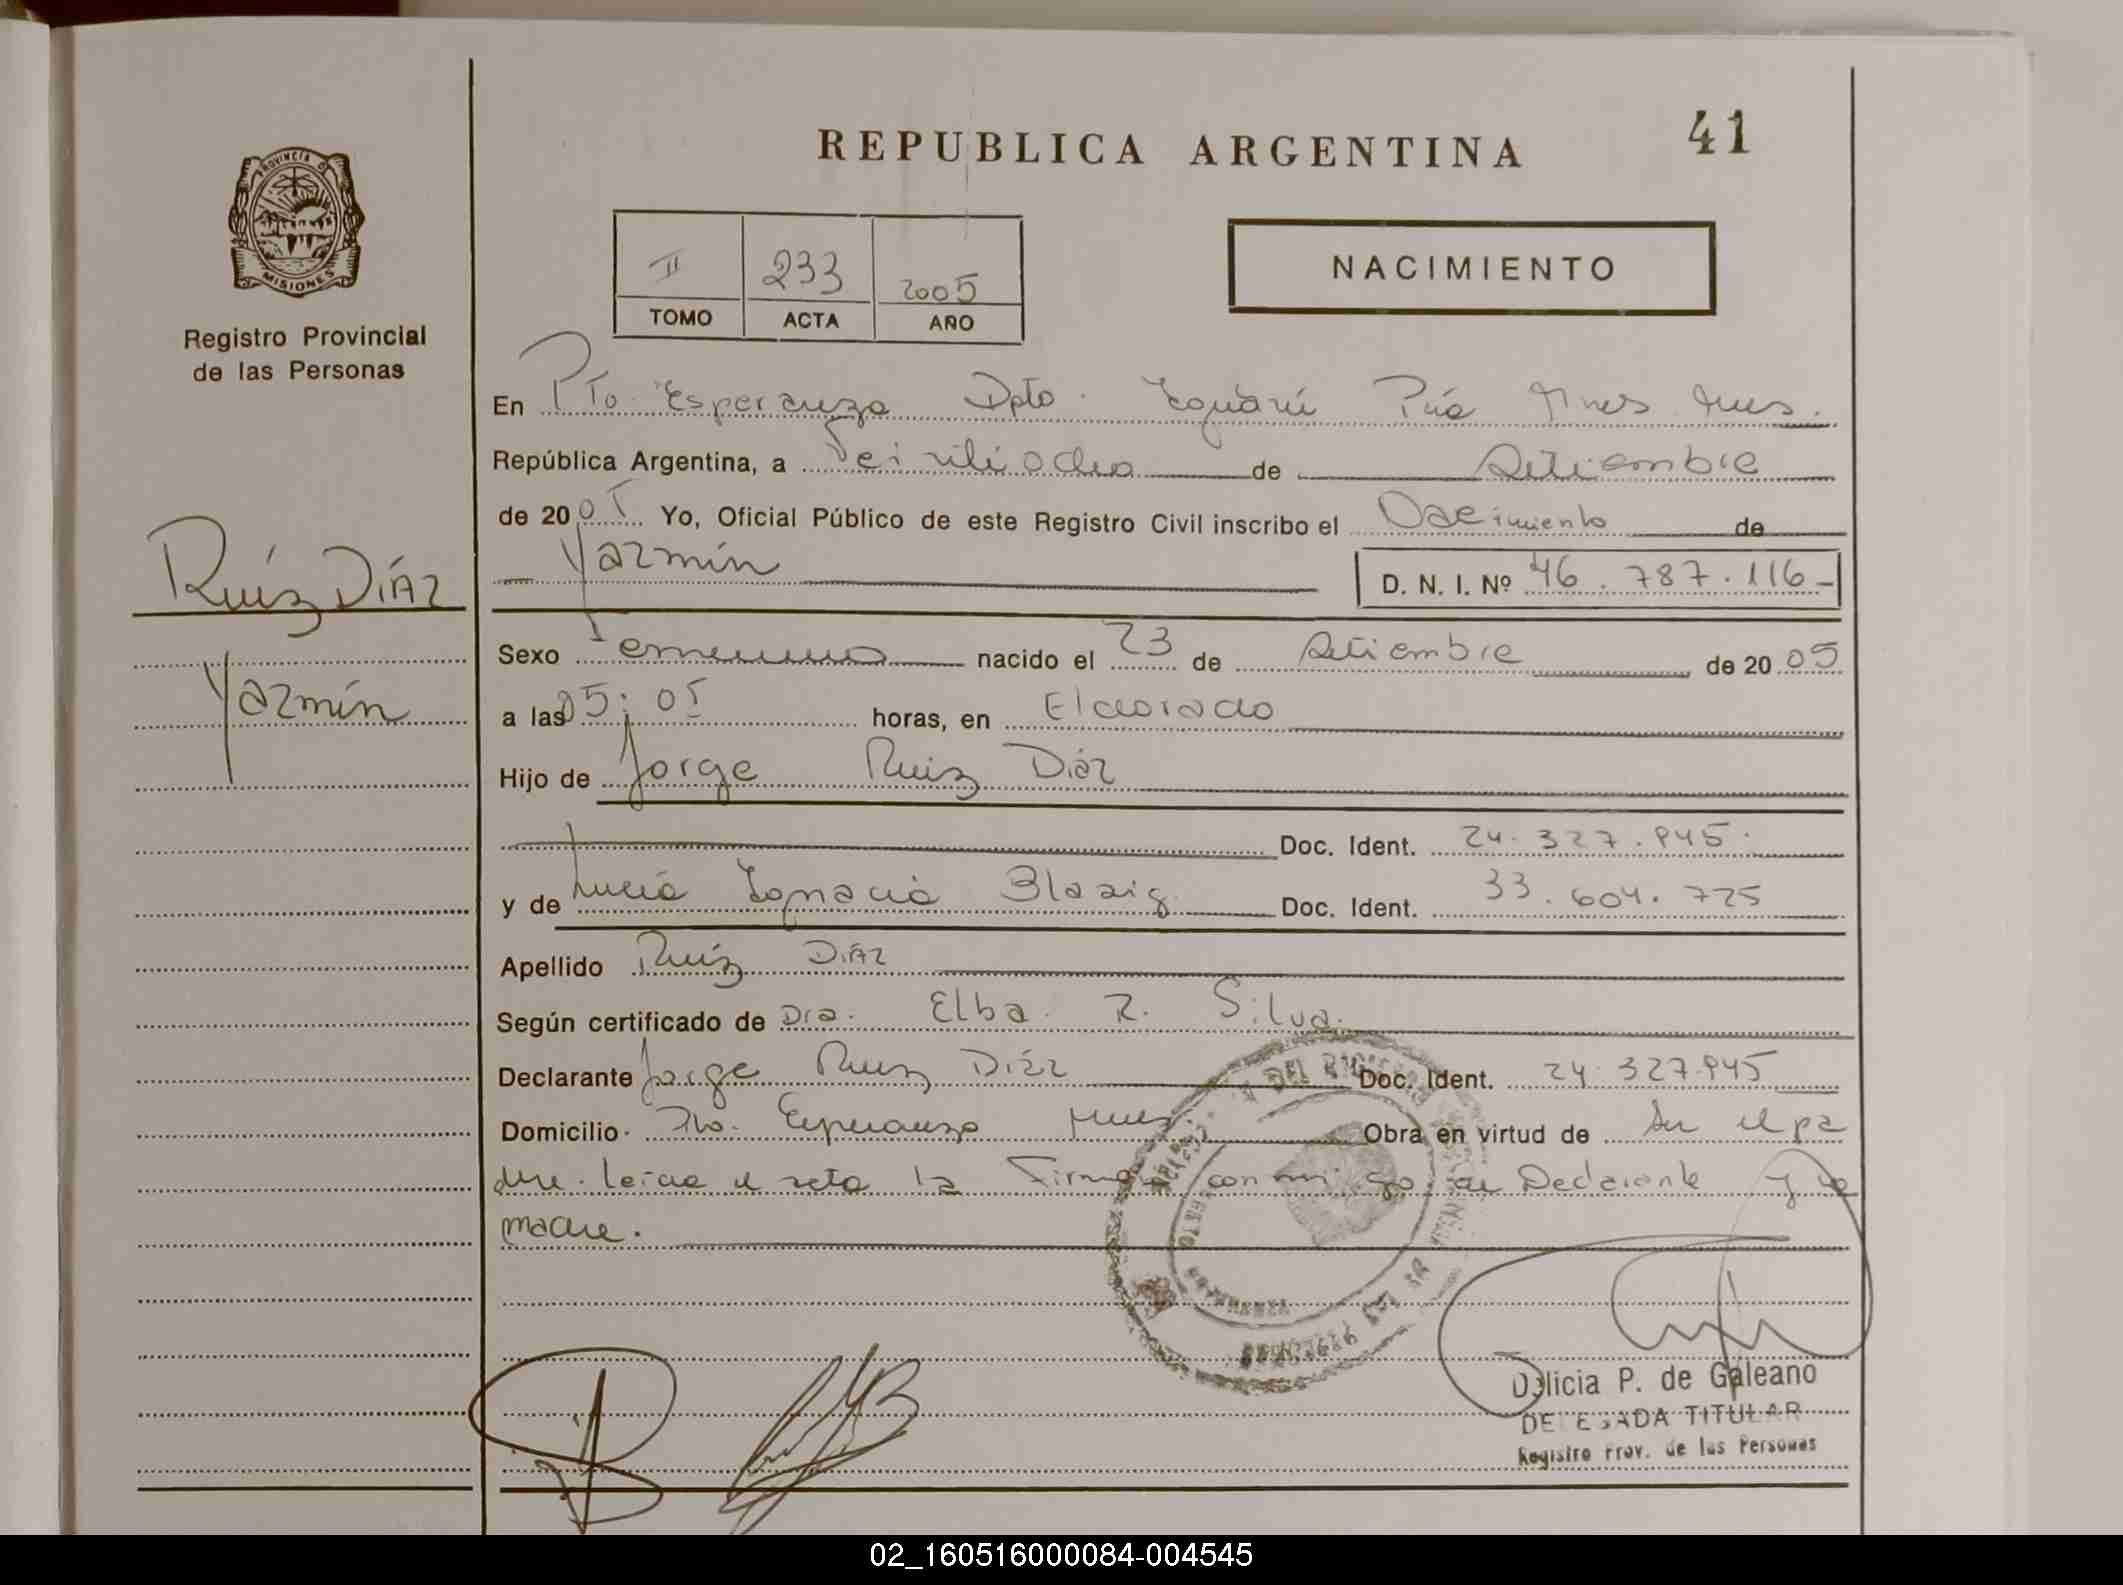 REPUBLICA ARGENTINA
41
PROVINCIA D
MISIONES
Registro Provincial
de las Personas
II 233 2005
TOMO ACTA AÑO
NACIMIENTO
En Pto. Esperanza Dpto. Iguazú Pcia Mnes
República Argentina, a Veintiocho de Setiembre
de 2005 Yo, Oficial Público de este Registro Civil inscribo el Nacimiento de
Yazmín
D. N. I. Nº 46.787.116-
Ruíz DíAz
Yazmín
Sexo Femenino nacido el 23 de Setiembre de 2005
a las 05:05 horas, en Eldorado
Hijo de Jorge Ruiz Díaz
Doc. Ident. 24.327.945.
y de Lucía Ignacia Doc. Ident. 33.604.725
Apellido Ruíz DíAz
Según certificado de Dra. Elba R. Silva.
Declarante Jorge Ruiz Díaz Doc. Ident. 24.327.945
Domicilio Pto. Esperanza Mnes Obra en virtud de Ser el pa
dre. Leída el acta la Firma conmigo el Declarante y la
madre.
Delicia P. de Galeano
DELEGADA TITULAR
Registro Prov. de las Personas
02_160516000084-004545